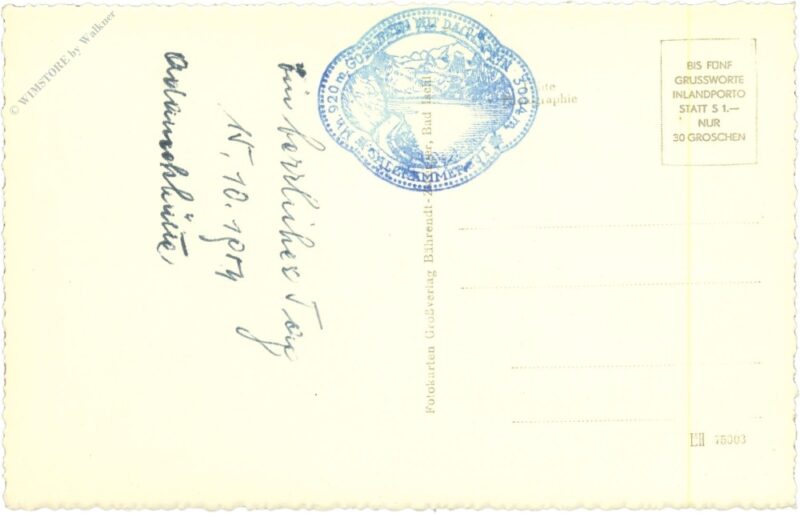 © WIMSTORE by Walkner
Ein herrlicher Tag
10.
GOSAUSEE MIT DACHSTEIN 3004 m.
920 m
SALZKAMMERGUT
Fotokarten Großverlag Bährendt- Bad Ischl
BIS FÜNF
GRUSSWORTE
INLANDPORTO
STATT S 1.—
NUR
30 GROSCHEN